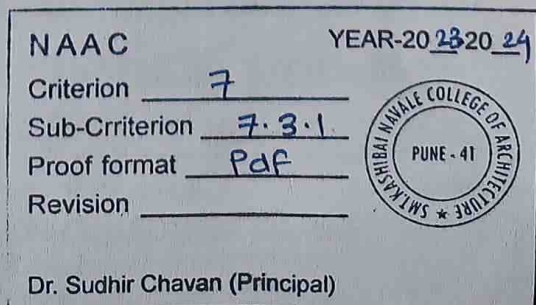 NAAC YEAR-20 23 20 24
Criterion 7
Sub-Crriterion 7.3.1
Proof format Pdf
Revision
SMT. KASHIBAI NAVALE COLLEGE OF ARCHITECTURE
PUNE - 41
Dr. Sudhir Chavan (Principal)